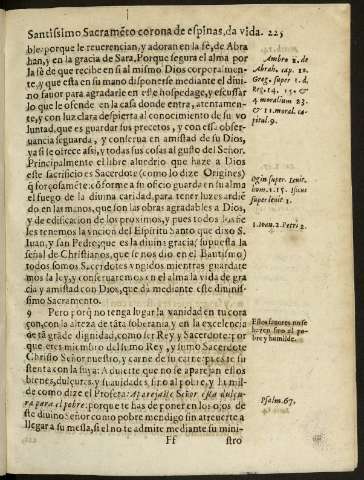 Santissimo Sacramẽto corona de espinas, da vida. 225
ble, porque le reuerencian, y adoran en la fè, de Abra
han, y en la gracia de Sara. Porque segura el alma por
la fè de que recibe en si al mismo Dios corporalmen
te, y que esta en su mano disponerse mediante el diui
no fauor para agradarle en este hospedage, y escussar
lo que le ofende en la casa donde entra, atentamen-
te, y con luz clara despierta al conocimiento de su vo
luntad, que es guardar sus precetos, y con essa obser-
uancia se guarda, y conserua en amistad de su Dios,
y assi le ofrece assi, y todas sus cosas al gusto del Señor.
Principalmente el libre aluedrio que haze a Dios
este sacrificio es Sacerdote (como lo dize Origines)
q̃ forçosamẽte cõforme a su oficio guarda en su alma
el fuego de la diuina caridad, para tener luzes ardiẽ
do en las manos, que son las obras agradables a Dios,
y de edificacion de los proximos, y pues todos los fie
les tenemos la vncion del Espiritu Santo que dixo S.
Iuan, y san Pedro, que es la diuina gracia, supuesta la
señal de Christianos, que se nos dio en el Bautismo)
todos somos Sacerdotes vngidos mientras guardare
mos la ley, y conseruaremos en el alma la vida de gra
cia y amistad con Dios, que da mediante este diuinis-
simo Sacramento.
9 Pero porq̃ no tenga lugar la vanidad en tu cora
çon, con la alteza de tãta soberania, y en la excelencia
de tã grãde dignidad, como ser Rey, y Sacerdote: por
que eres miembro del sumo Rey, y sumo Sacerdote
Christo Señor nuestro, y carne de su carne: pues te su
stenta con la suya: Aduierte que no se aparejan estos
bienes, dulçuras, y suauidades, sino al pobre, y humil-
de como dize el Profeta: Aparejaste Señor esta dulçu
ra para el pobre: porque te has de poner en los ojos de
este diuino Señor como pobre mendigo sin atreuerte a
llegar a su mesa, si el no te admite mediante su mini-
Ff stro
Ambro li. de
Abrah. cap. 12.
Greg. super 1. d.
Reg. 14. 15. &
4 moralium 23.
& 11. moral. ca
pitul. 9.
super Leuit.
hom. 1. 15.
super leuit 1.
1. Ioan. 2. Petri 2.
Estos fauores no se
hazen sino al po-
bre y humilde.
Psalm. 67.